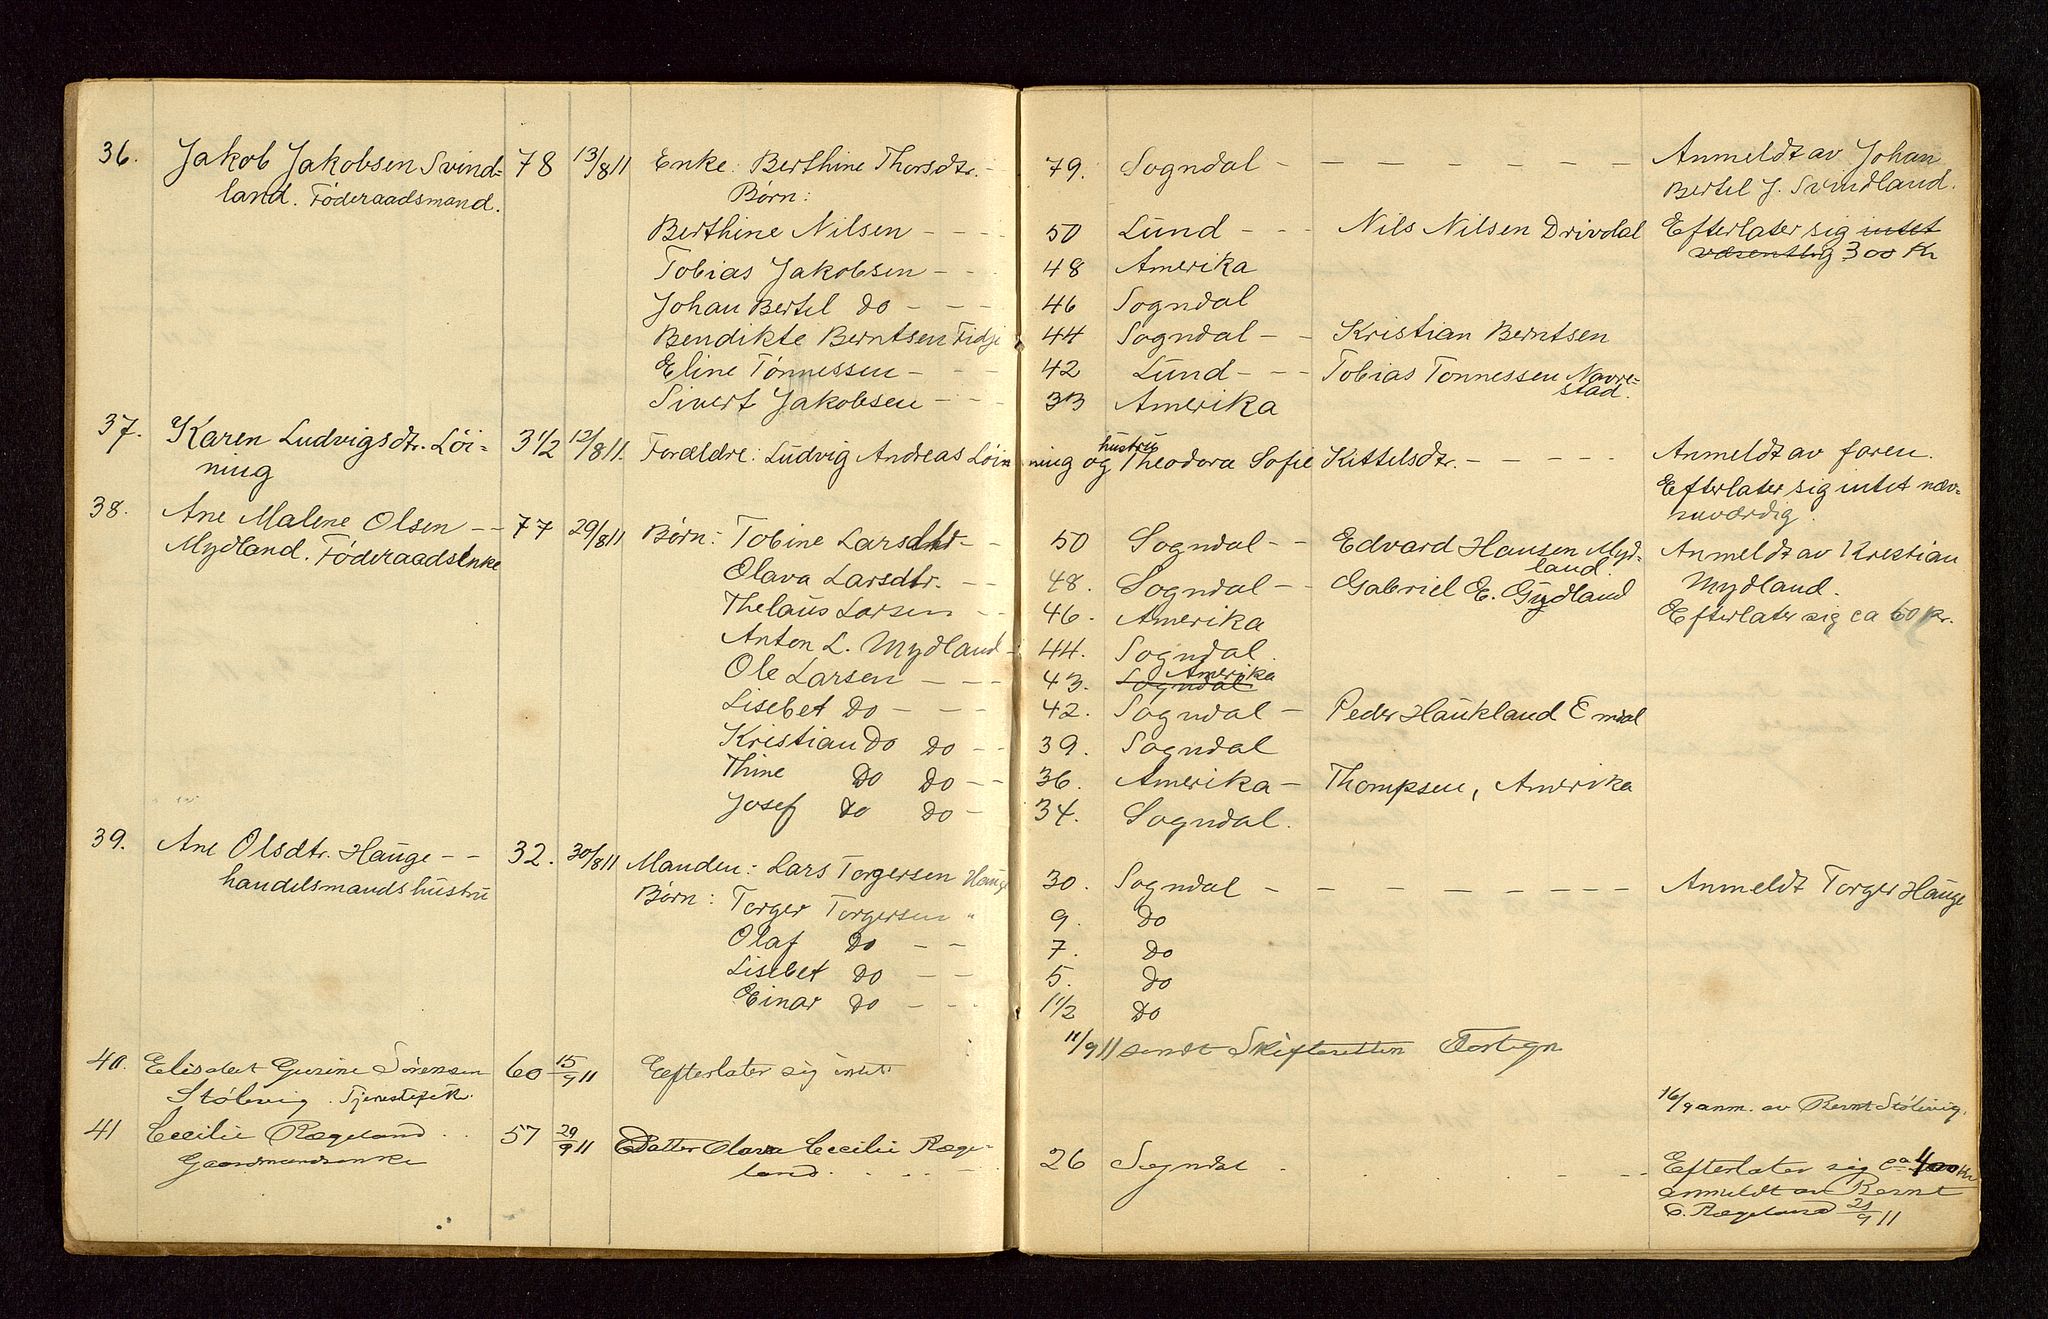 36. Jakob Jakobsen Svind- 78 13/8 11 Enke: Berthine Thorsdtr. - 79. Sogndal - - - - - - - - Anmeldt av Johan
land. Föderaadsmand. Børn: Bertel J. Svindland.
Berthine Nilsen - - - 50 Lund - - - Nils Nilsen Drivdal Efterlater sig intet
Tobias Jakobsen - - 48 Amerika væsentlig 300 Kr
Johan Bertel do - - - 46 Sogndal
Bendikte Berntsen Fidje 44 Sogndal - - Kristian Berntsen
Eline Tønnessen - - - 42 Lund - - - Tobias Tonnessen Navre-
stad.
Sivert Jakobsen - - - 33 Amerika
37. Karen Ludvigsdtr. Löi- 3 1/2 12/8 11. Forældre: Ludvig Andreas Löin ning og hustru Theodora Sofie Kittelsdtr. - - - - - Anmeldt av faren.
ning Efterlater sig intet næv-
neværdig.
38. Ane Malene Olsen - - 77 29/8 11 Børn: Tobine Larsdtr - - 50 Sogndal - - Edvard Hansen Myd- Anmeldt av Kristian
Mydland. Föderaadsenke land. Mydland.
Olava Larsdtr. - - 48. Sogndal - - Gabriel E. Gydland
Thelaus Larsen - - 46. Amerika Efterlater sig ca 60 kr.
Anton L. Mydland - 44. Sogndal.
Ole Larsen - - - 43. Sogndal Amerika
Lisebet Do - - - 42. Sogndal - Peder Haukland Emdal
Kristian Do Do - - 39. Sogndal
Thine Do Do - - 36. Amerika - Thompsen, Amerika
Josef Do Do - 34. Sogndal.
39. Ane Olsdtr. Hauge - - 32. 30/8 11 Manden: Lars Torgersen Hauge 30. Sogndal - - - - - - - - Anmeldt Torger Hauge
handelsmands hustru Børn: Torger Torgersen " 9. Do
Olaf Do - - 7. Do
Lisebet Do - - 5. Do
Einar Do - - - 1 1/2 Do
11/9 11 sendt Skifteretten Fortegn
40. Elisabet Gurine Sørensen 60 15/9 11 Efterlater sig intet
Stölsvig. Tjenestepik. 16/9 anm. av Bernt Stölsvig.
41 Cecilie Rægeland . . 57 29/9 11 Datter Olava Cecilie Ræge- 26 Sogndal . . - - Efterlater sig ca 400 Kr
Gaardmandsenke land. . . . - anmeldt av Bernt
C. Rægeland 21/9 11